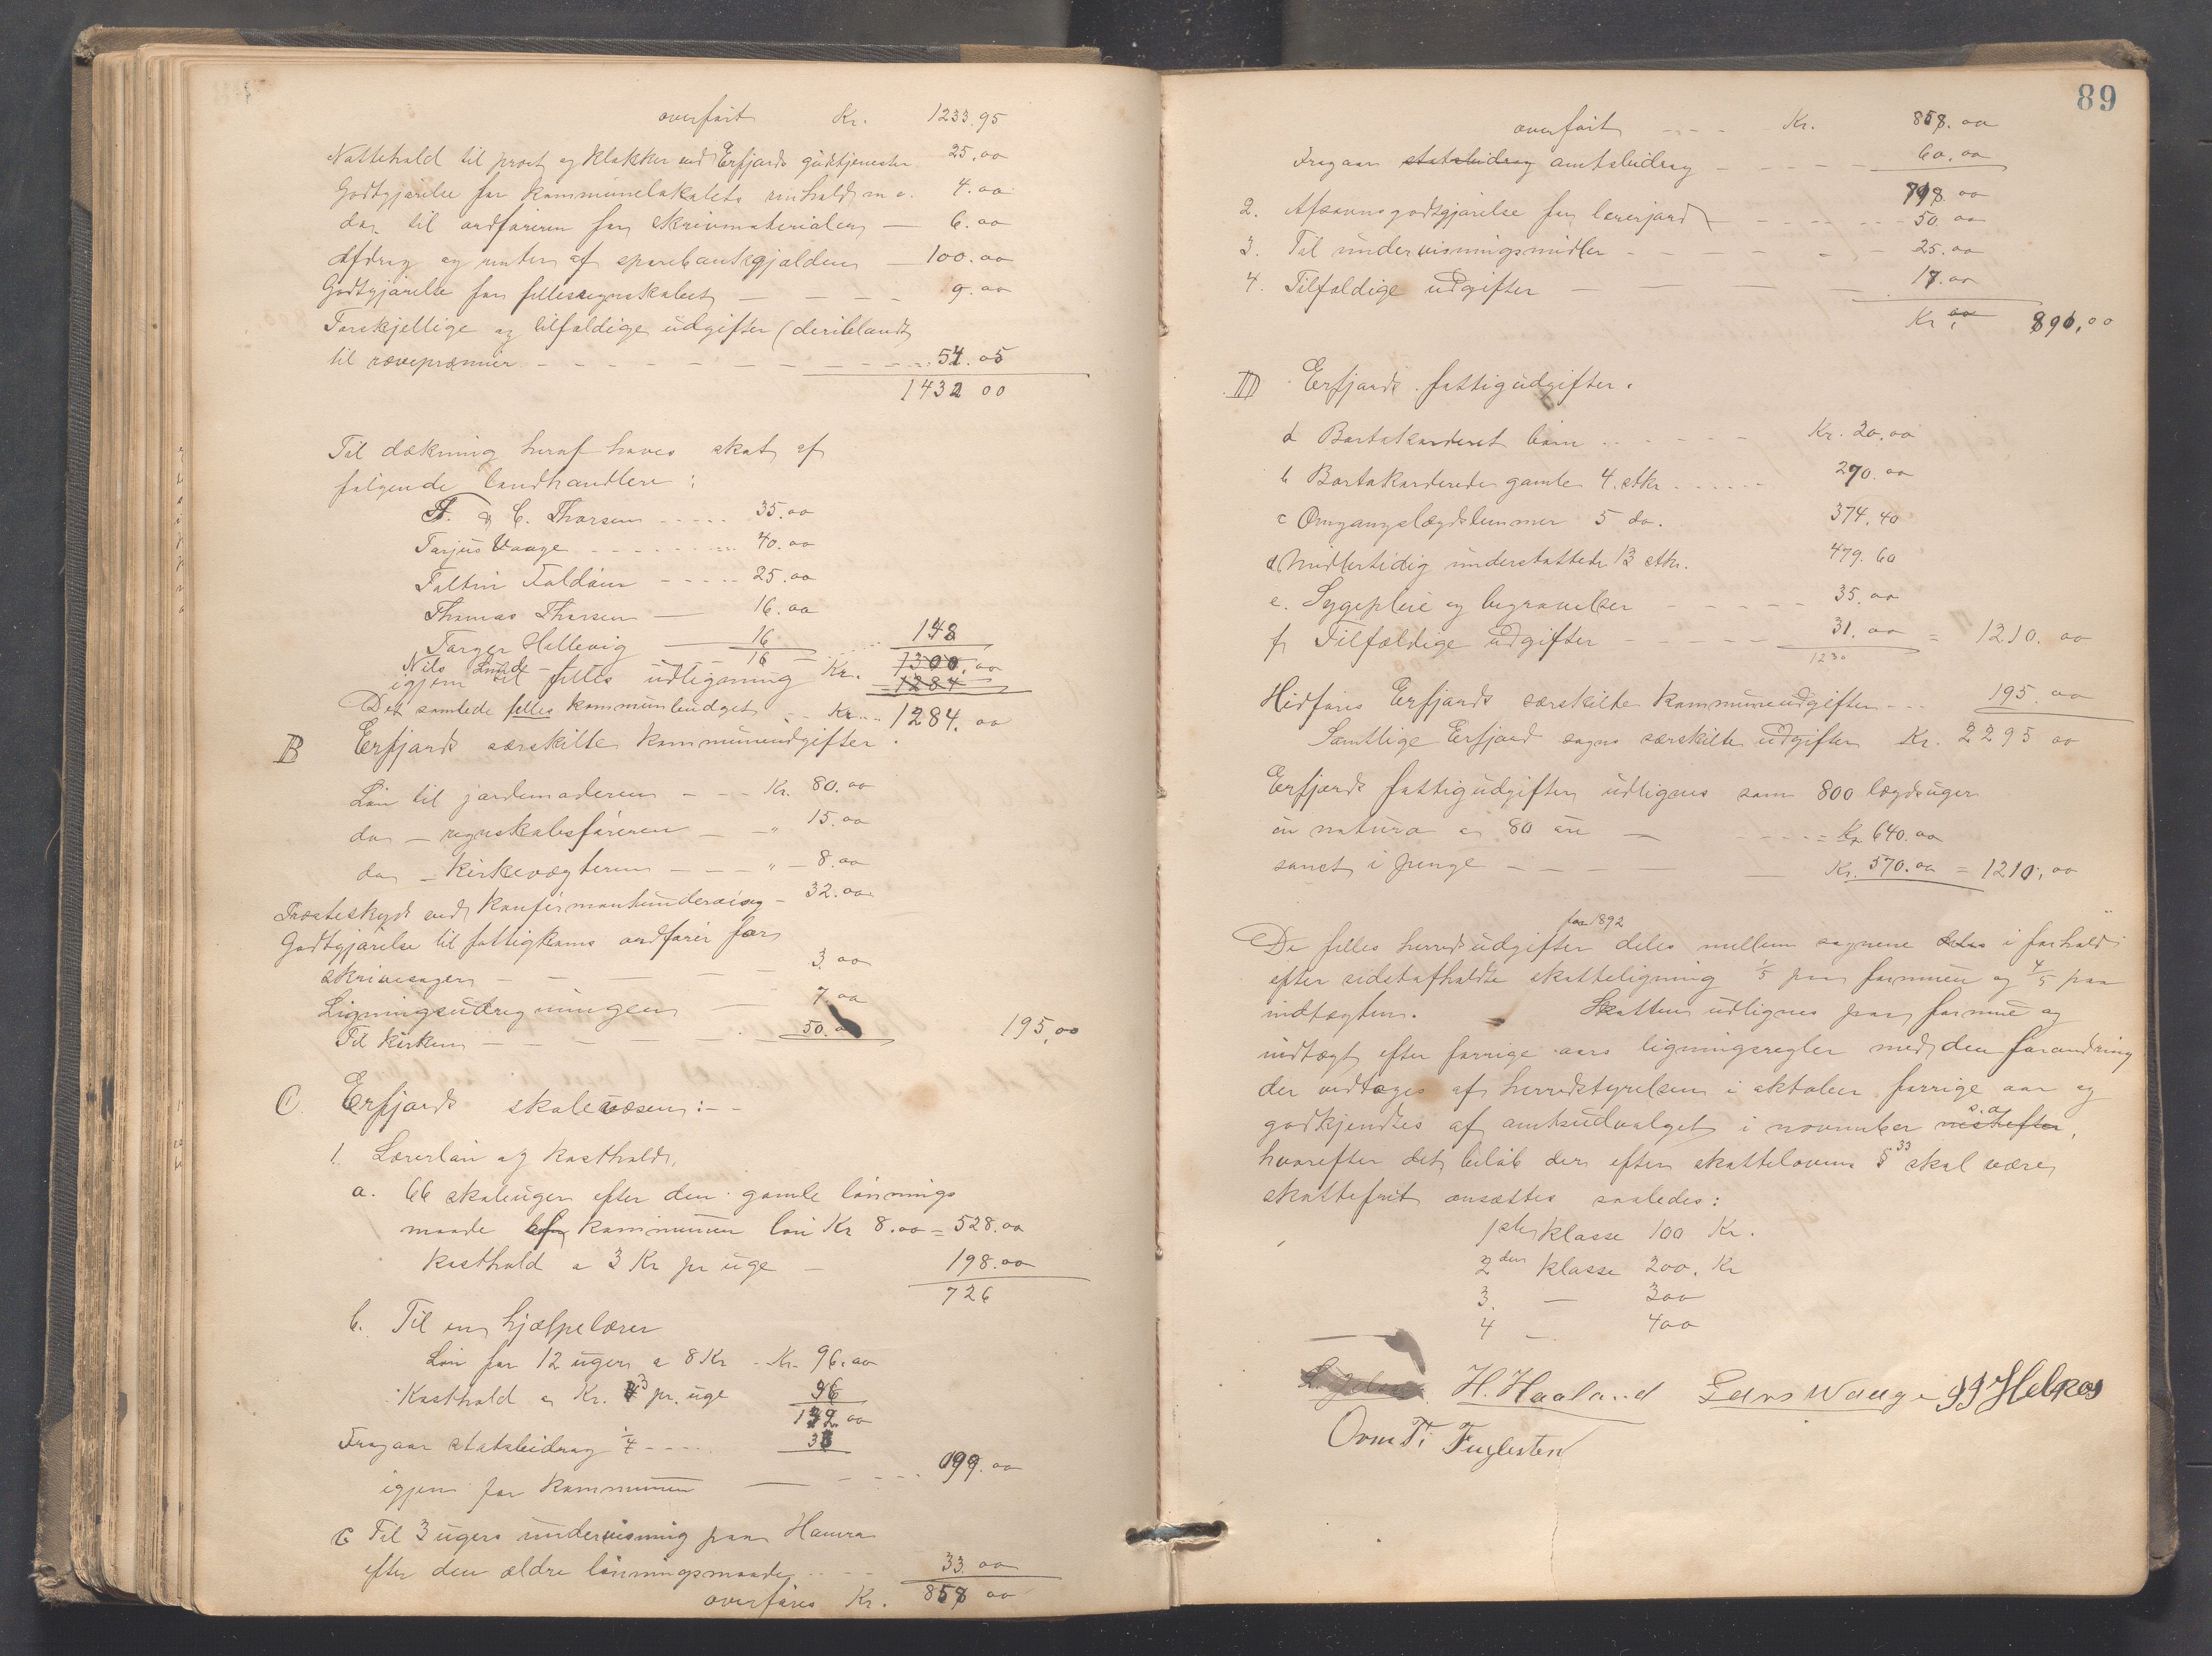 overført Kr. 1233.95
Nattehold til prost og klokker ved Erfjords gudstjenester 25.00
Godtgjørelse for kommunelokalets renhold m. v. 4.00
do. til ordføreren for skrivmaterialer — 6.00
Afdrag og renter af sparebankgjælden — 100.00
Godtgjørelse for fællesregnskabet — — — 9.00
Forskjellige og tilfældige udgifter (deriblandt
til rovepræmier — — — 54.05
1432 00
Til dækning heraf haves skat af
følgende landhandlere:
T. & C. Thorsen — 35.00
Tarjus Vaage — 40.00
Foldøen — 25.00
Thomas Thorsen — 16.00
Torger Hellevig — 16 148
Nils Lunde — 16
igjen til fælles udligning Kr. 1300.00
1284
Det samlede fælles kommunebudget Kr. 1284.00
B Erfjords særskilte kommuneudgifter.
Løn til jordemoderen — Kr. 80.00
do — regnskabsføreren — " 15.00
do — kirkevægteren — " — 8.00
Præsteskyds ved konfirmantundervisng — 32.00
Godtgjørelse til fattigkoms ordfører for
skrivesager — — — 3.00
Ligningsudregningen — 7.00
Til kirken — — — 50.00 195,00
C. Erfjords skolevæsen:-
1. Lærerløn og kosthold,
a. 66 skoleuger efter den gamle lønnings
maade af kommunen løn Kr 8.00 = 528.00
kosthold a 3 Kr pr uge — 198.00
726
b. Til en hjælpelærer
Løn for 12 uger a 8 Kr — Kr. 96.00
Kosthold a Kr. 3 pr. uge 36
132.00
Fragaar statsbidrag ¼ — 33
igjen for kommunen — — 099.00
c Til 3 ugers undervisning paa Hamra
efter den ældre lønningsmaade — 33.00
overføres Kr. 858 00
89
overført — Kr. 858.00
Fragaar statsbidrag amtsbidrag — — — 60.00
798.00
2. Afsavnsgodtgjørelse for lererjord — — 50.00
3. Til undervisningsmidler — — — 25.00
4. Tilfældige udgifter — — — 17.00
Kr. 890,00
D Erfjords fattigudgifter.
a Bortakorderet børn — Kr. 20.00
b Bortakorderede gamle 4 stkr. — 270.00
c Omgangslægdslemmer 5 do. 374.40
d Midlertidig understøttede 13 stkr. 479.60
e. Sygepleie og begravelser — 35.00
f Tilfældige udgifter — 31.00 = 1210.00
1230
Hidføres Erfjords særskilte kommuneudgifter — 195.00
Samtlige Erfjord sogns særskilte udgifter Kr. 2295 00
Erfjords fattigudgifter udlignes som 800 lægdsuger
in natura a 80 øre — = Kr 640.00
samt i penge — — — Kr. 570.00 = 1210,00
for 1892
De fælles herredsudgifter deles mellem sognene deles i forhold
efter sidstafholdte skatteligning 1/5 paa formuen og 4/5 paa
indtægten. Skatten udlignes paa formue og
indtægt efter forrige aars ligningsregler med den forandring
der vedtoges af herredstyrelsen i oktober forrige aar og
s. a.
godkjendtes af amtsudvalget i november nestefter,
hvorefter det beløb der efter skattelovens § 33 skal være
skattefrit ansættes saaledes:
1ste klasse 100 Kr.
2den klasse 200. Kr
3. — 300
4 — 400
H. Haaland Lars Waage
Orm T. Fuglesten